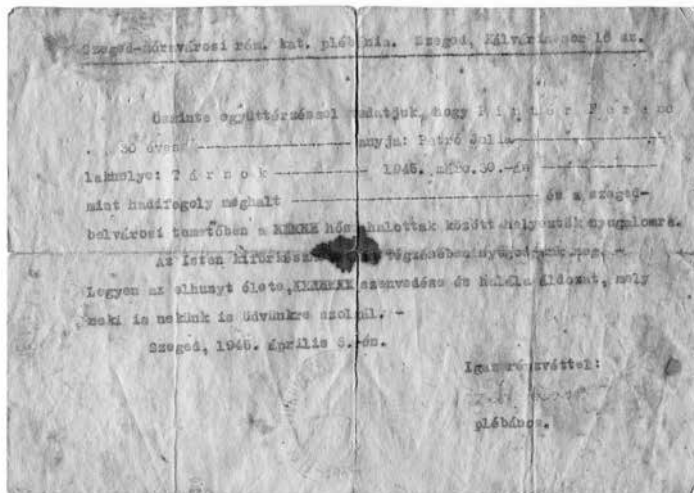 Szeged-Móravárosi róm. kat. plébánia. Szeged, Kálvária sor 16 sz.
Őszinte együttérzéssel tudatjuk, hogy P i n t é r F e r e n c
30 éves anyja: Petró Julia
lakhelye: T á r n o k 1945. márc. 30.-án
mint hadifogoly meghalt és a szeged-
belvárosi temetőben a XXXXX hősi halottak között helyezték nyugalomra.
Az Isten végzésében meg. -
Legyen az elhunyt élete, XXXXXXX szenvedése és halála áldozat, mely
neki is nekünk is üdvünkre szolgál. -
Szeged, 1945. április 5.-én.
Igaz részvéttel:
plébános.